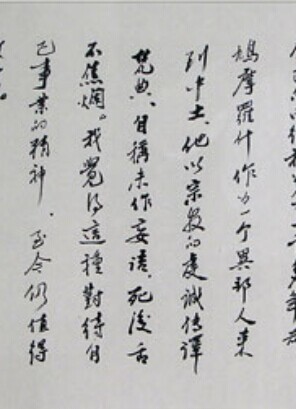 鳩摩羅什作为一个異邦人来
到中土、他以宗教的虔诚传譯
梵典、自稱未作妄語、死後舌
不焦爛。我覺得這種對待自
己事業的精神、至今仍值得